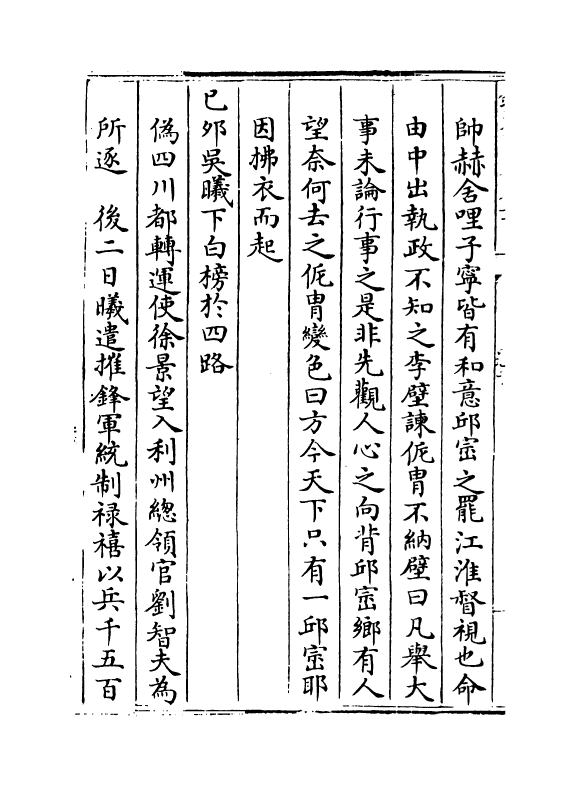 帥赫舍哩子寧皆有和意邱崈之罷江淮督視也命
由中出執政不知之李壁諫侂胄不納壁曰凡舉大
事未論行事之是非先觀人心之向背邱崈鄉有人
望奈何去之侂胄變色曰方今天下只有一邱崈耶
因拂衣而起
已夘吳曦下白榜於四路
偽四川都轉運使徐景望入利州總領官劉智夫為
所逐　後二日曦遣摧鋒軍統制禄禧以兵千五百